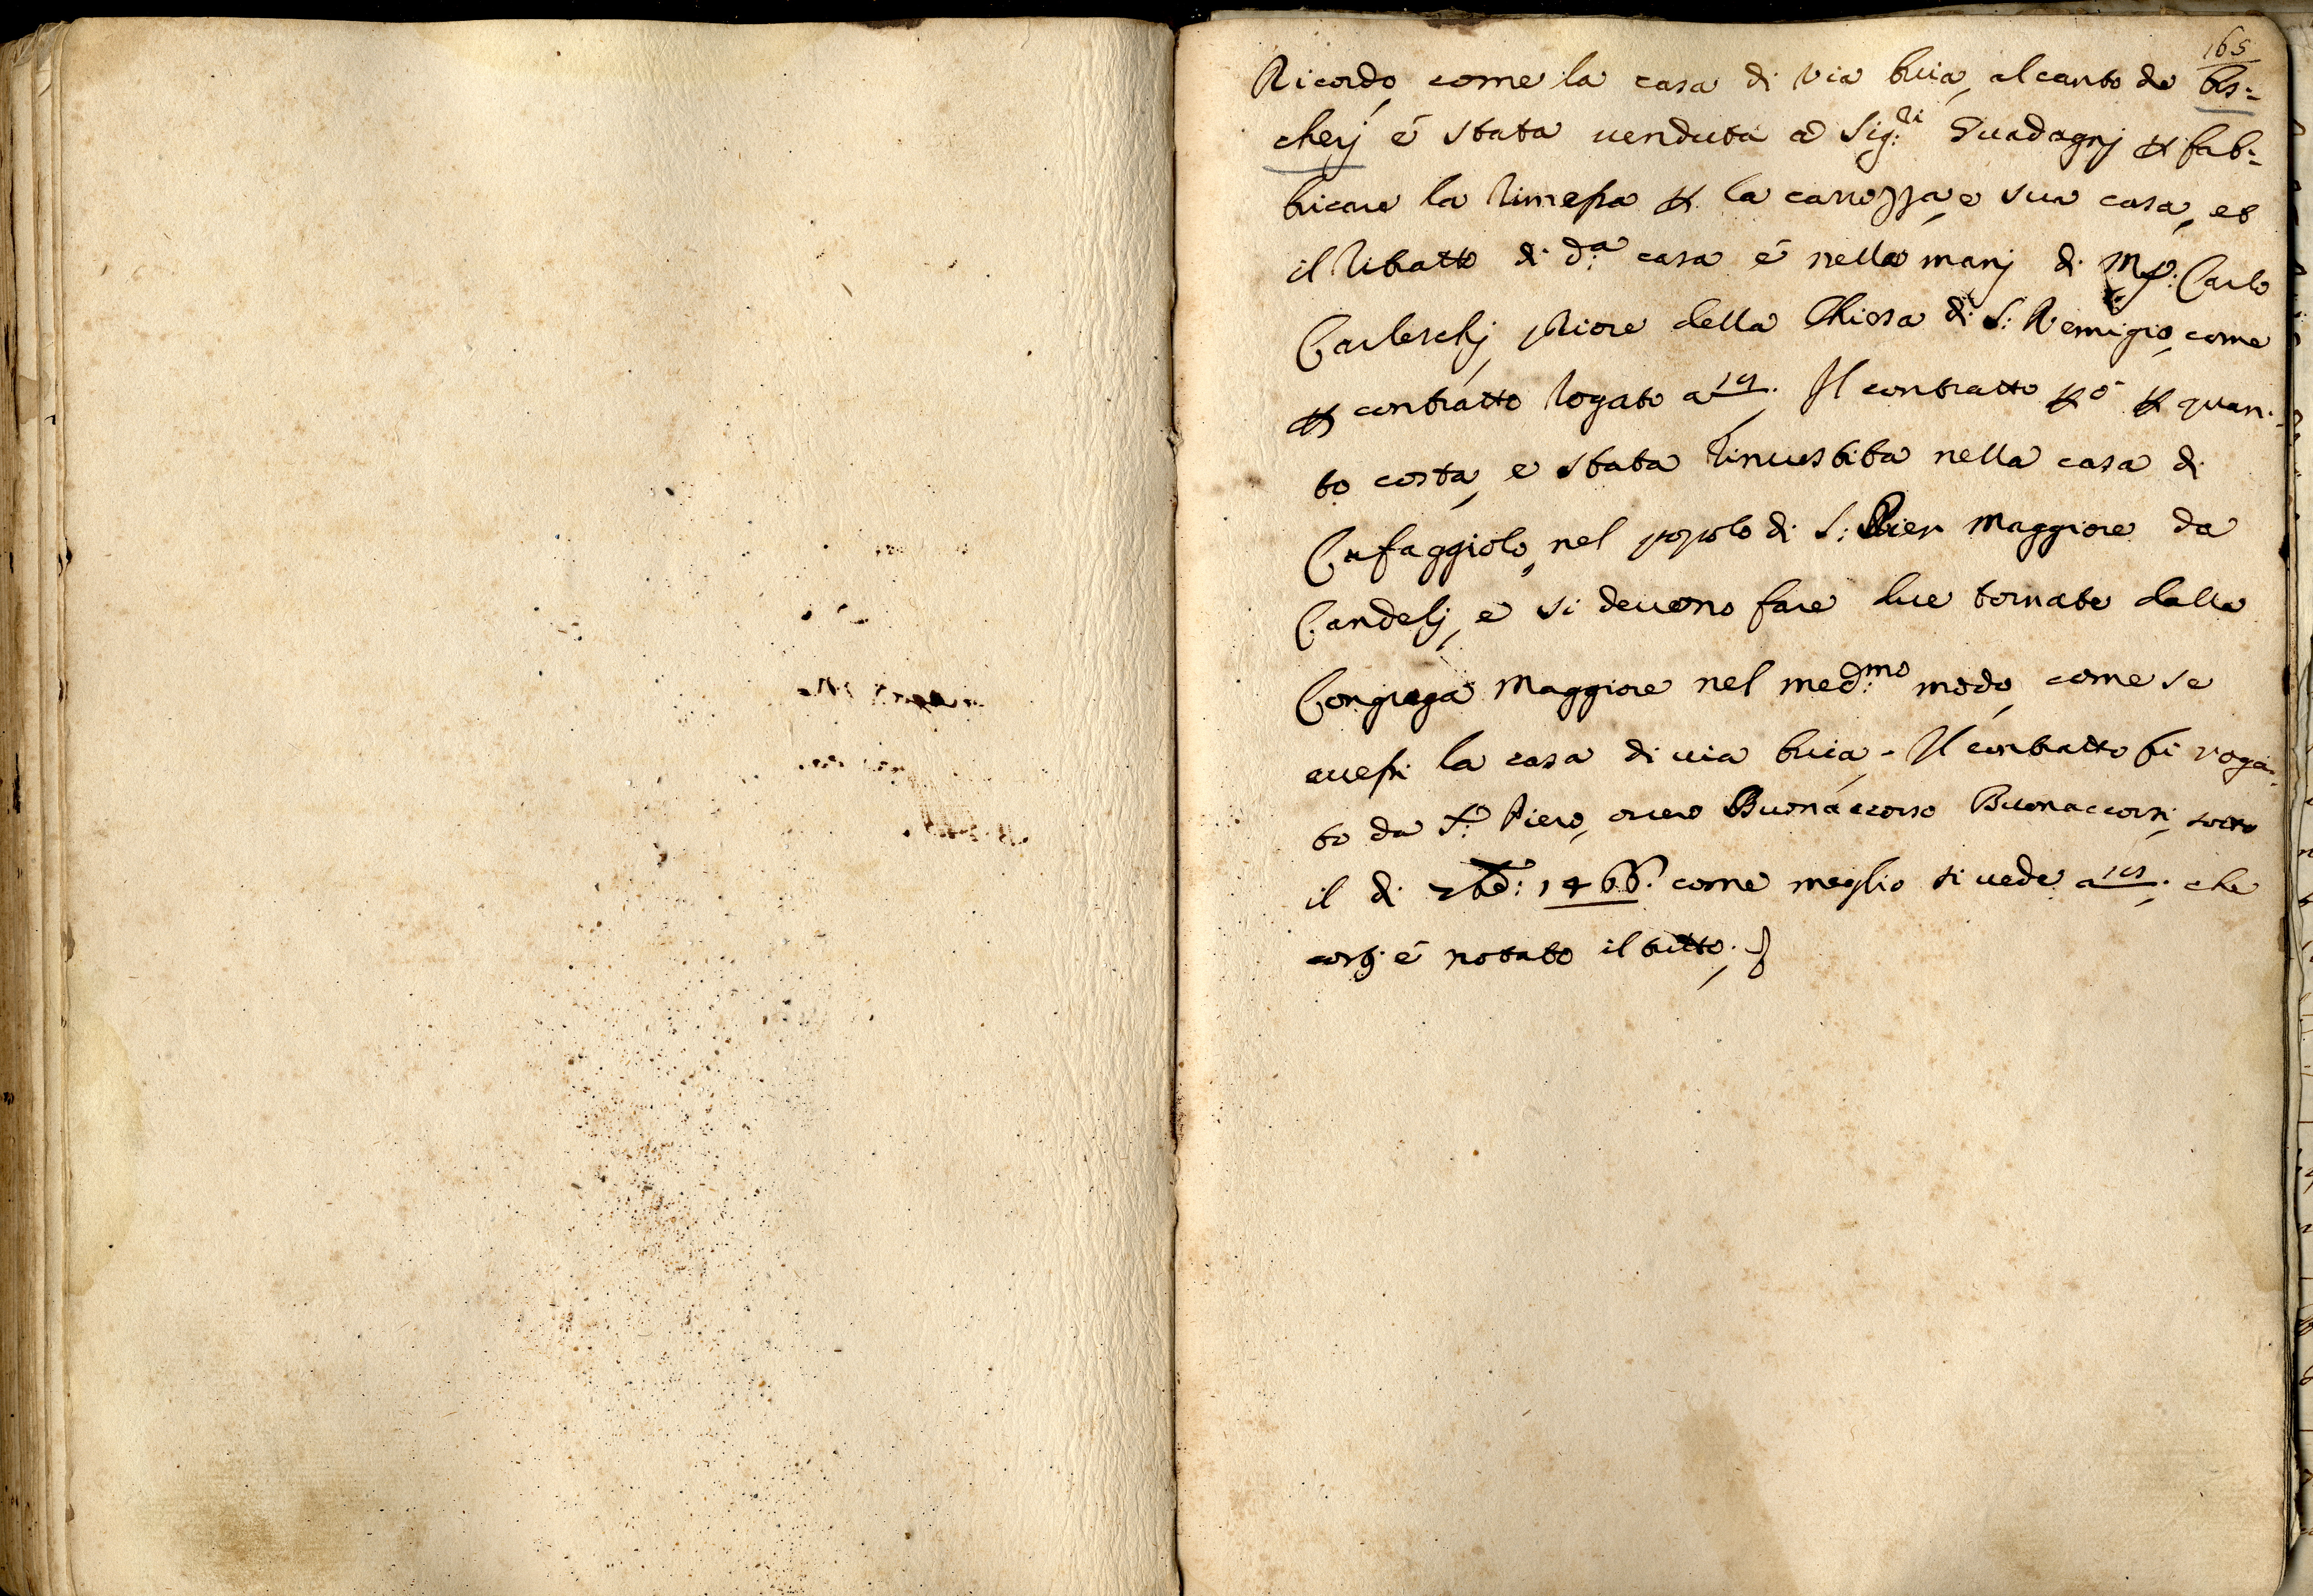 165
Ricordo, come la casa di Via buia, al canto de bis=
cherj é stata uenduta a Sig:ri Guadagnj p fab=
bricare la rimessa p la carrozza, e sua casa, et
il ritratto di d:a casa é nella manj di Carlo
Carleschj, priore della Chiesa di S: Remigio, come
p contratto rogato a 19. Il contratto p ó p quan=
to costa, e stata rinuestita nella casa di
Cafaggiolo, nel popolo di S: Pier Maggiore da
Candelj, e si deuono fare due tornate dalla
Congrega Maggiore nel med:mo modo, come se
auessi la casa di uia buia. Il contratto fú roga=
to da Piero, ouero Buonaccorso Buonaccorsi, sotto
il di 1466. come meglio si uede a che
cosj é notato il tutto.